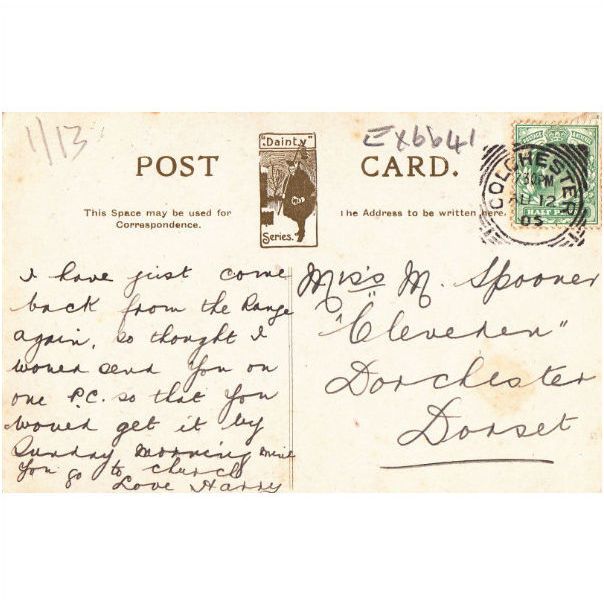 1/13
Ex6641
POST CARD.
"Dainty"
Series.
This Space may be used for
Correspondence.
The Address to be written here.
COLCHESTER
7 30 PM
AU 12
05
POSTAGE
HALF P
I have just come
back from the Range
again, so thought I
would send you on
one P.C. so that you
would get it by
Sunday morning mind
you go to church
Love Harry
Miss M. Spooner
"Cleveden"
Dorchester
Dorset